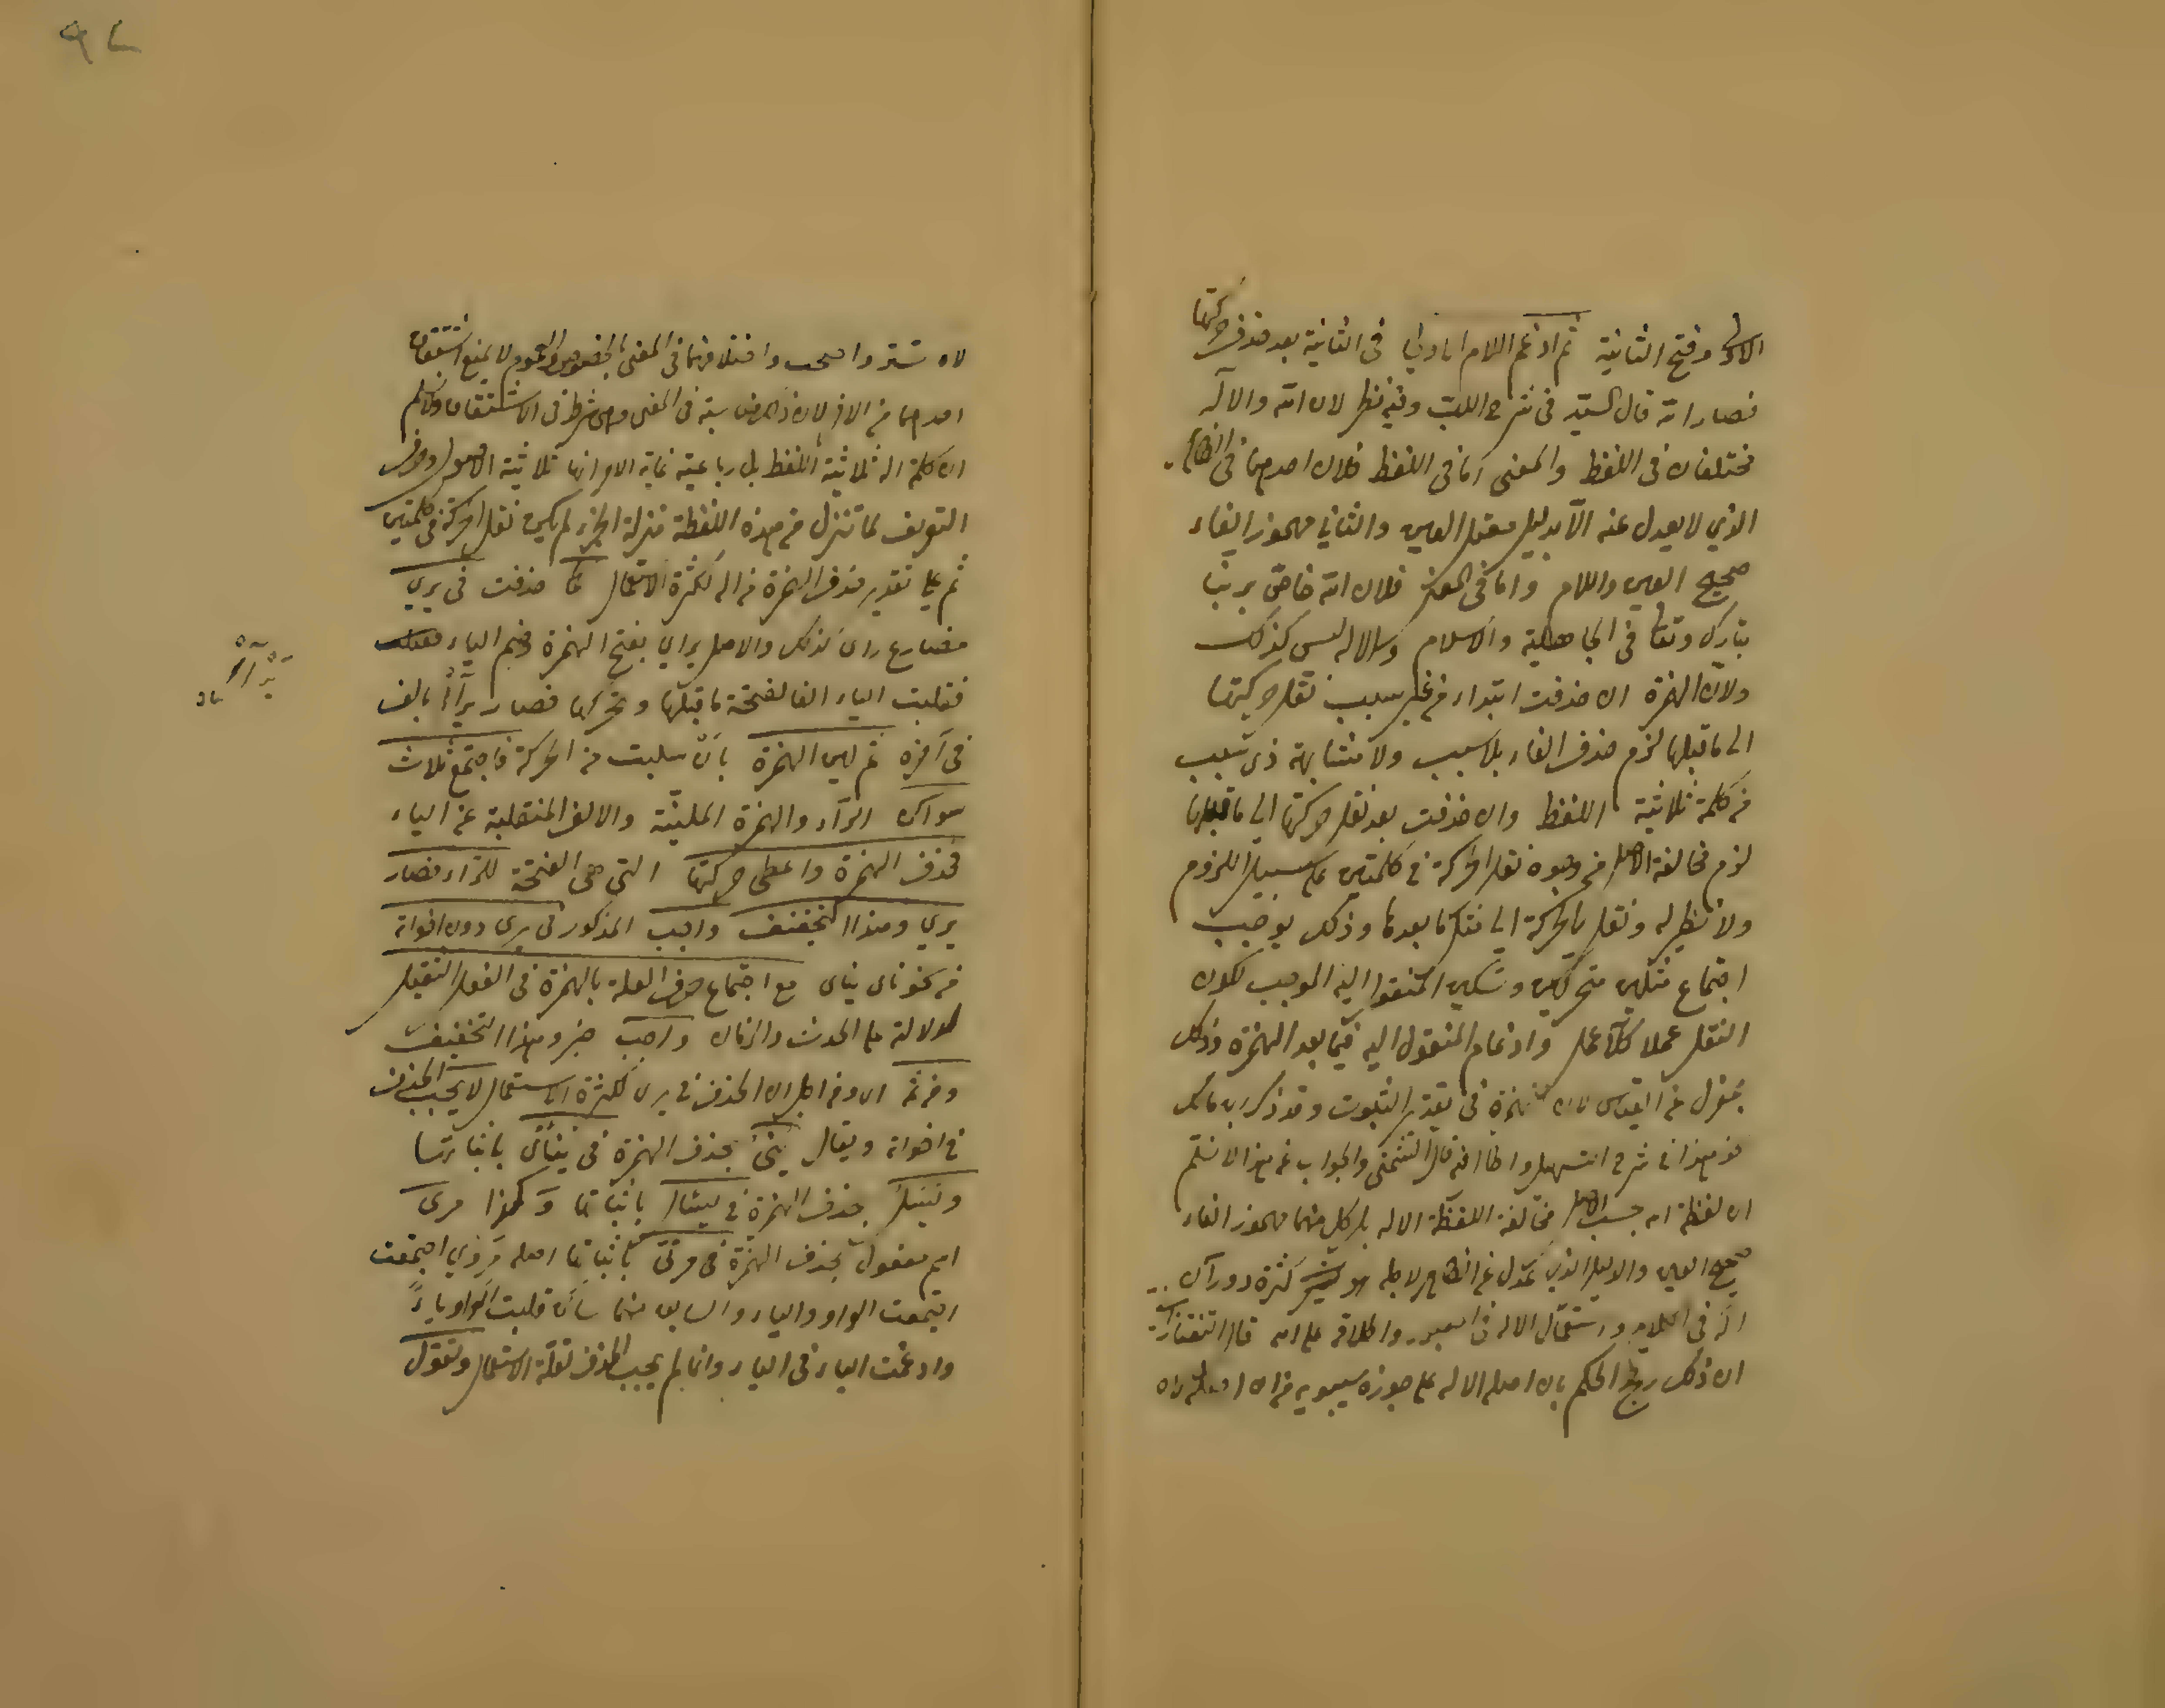 الاولى وفتح الثانية ثم ادغم اللام الاولى فى الثانية بعد حذف حركتها
فصار الله قال السيد فى شرح اللب وفيه نظر لان الله والاله
مختلفان فى اللفظ والمعنى اما فى اللفظ فلان احدهما فى الظاهر
الذي لا يعدل عنه الا بدليل معتل العين والثاني مهموز الفاء
صحيح العين واللام واما فى المعنى فلان الله خاص بربنا
تبارك وتعالى فى الجاهلية والاسلام والاله ليس كذلك
ولان الهمزة ان حذفت ابتداء من غير سبب نقل حركتها
الى ما قبلها لزم حذف الفاء بلا سبب ولا مشابهة ذى سبب
من كلمة ثلاثية اللفظ وان حذفت بعد نقل حركتها الى ما قبلها
لزم مخالفة الاصل من وجوه نقل الحركة فى كلمتين على سبيل اللزوم
ولا نظير له ونقل الحركة الى مثل ما بعدها وذلك يوجب
اجتماع مثلين متحركين وتسكين المنقول اليه الموجب لكون
النقل عملا كلا عمل وادغام المنقول اليه فيما بعد الهمزة وذلك
بمعزل عن القياس لان الهمزة فى تقدير الثبوت وقد ذكر ابن مالك
نحو هذا فى شرح التسهيل واطال فيه قال الشمنى والجواب عن هذا لا نسلم
ان لفظة الله بحسب الاصل مخالفة للفظة الاله بل كل منهما مهموز الفاء
صحيح العين والدليل الذي عدل عن الظاهر لاجله هو كثرة دوران
اله فى الكلام واستعمال الاله فى المعبود واطلاقه على الله قال التفتازانى
ان ذلك رجح الحكم بان اصله الاله على ما جوزه سيبويه من ان اصله لاه
لاه تستر واحتجب واختلافهما فى المعنى بالخصوص والعموم لا يمنع اشتقاق
احدهما من الاخر لان ذلك مناسبة فى المعنى وهى شرط فى الاشتقاق ولا نسلم
ان كلمة اله ثلاثية اللفظ بل رباعية غاية الامر انها ثلاثية الاصول وحرف
التعريف لما تنزل من هذه اللفظة منزلة الجزء لم يكن نقل الحركة فى كلمتين
ثم على تقدير حذف الهمزة من اله لكثرة الاستعمال كما حذفت فى يري
مضارع راى كذلك والاصل يراي بفتح الهمزة وضم الياء
فقلبت الياء الفا لفتحة ما قبلها وتحركها فصار يرآى بالف
فى آخره ثم لين الهمزة بان سلبت منه الحركة فاجتمع ثلاث
سواكن الرآء والهمزة الملينة والالف المنقلبة عن الياء
فحذف الهمزة واعطى حركتها التي هى الفتحة للراء فصار
يري وهذا التخفيف واجب المذكور فى يرى دون اخواته
من نحو ناى يناى مع اجتماع حرف العلة بالهمزة فى الفعل الثقيل
لدلالته على الحدث والزمان واجب خبر وهذا التخفيف
ومن ثم اى ومن اجل ان الحذف فى يرى لكثرة الاستعمال لا يجب الحذف
فى اخواته ويقال ينى بحذف الهمزة فى يناى باثباتها
ويسل بحذف الهمزة فى يسئال باثباتها وكذا مرى
اسم مفعول بحذف الهمزة فى مرئى باثباتها اصله مرؤي اجتمعت
اجتمعت الواو والياء والسابق منهما ساكن قلبت الواو ياء
وادغمت الياء فى الياء وانما لم يجب الحذف لقلة الاستعمال وتقول